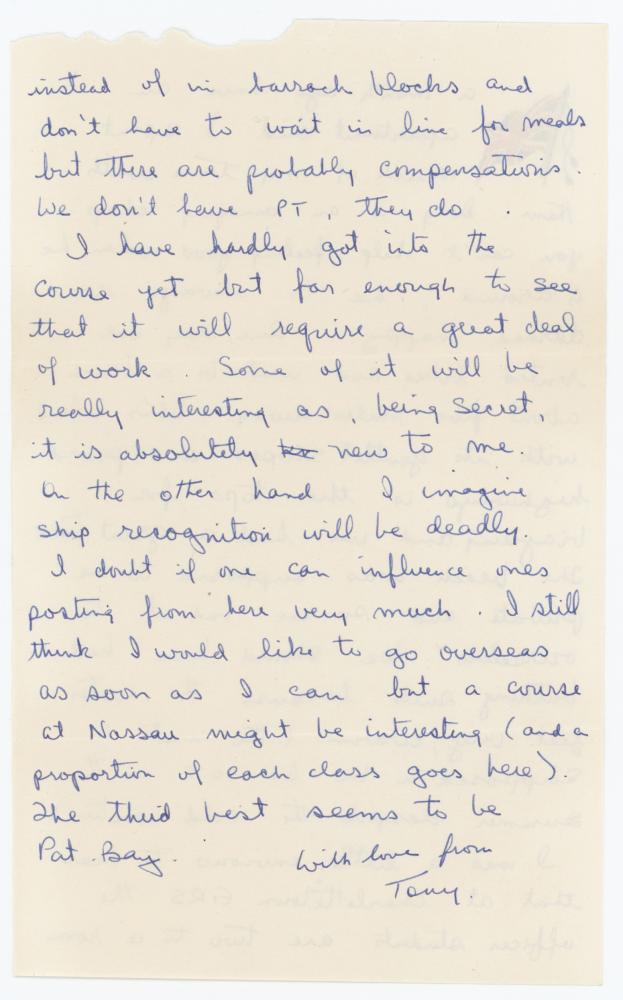 instead of in barrack blocks and
don't have to wait in line for meals
but there are probably compensations.
We don't have PT, they do.
I have hardly got into the
course yet but far enough to see
that it will require a great deal
of work. Some of it will be
really interesting as, being secret,
it is absolutely new to me.
On the other hand I imagine
ship recognition will be deadly.
I doubt if one can influence ones
posting from here very much. I still
think I would like to go overseas
as soon as I can but a course
at Nassau might be interesting (and a
proportion of each class goes here).
The third best seems to be
Pat. Bay. With love from
Tony.